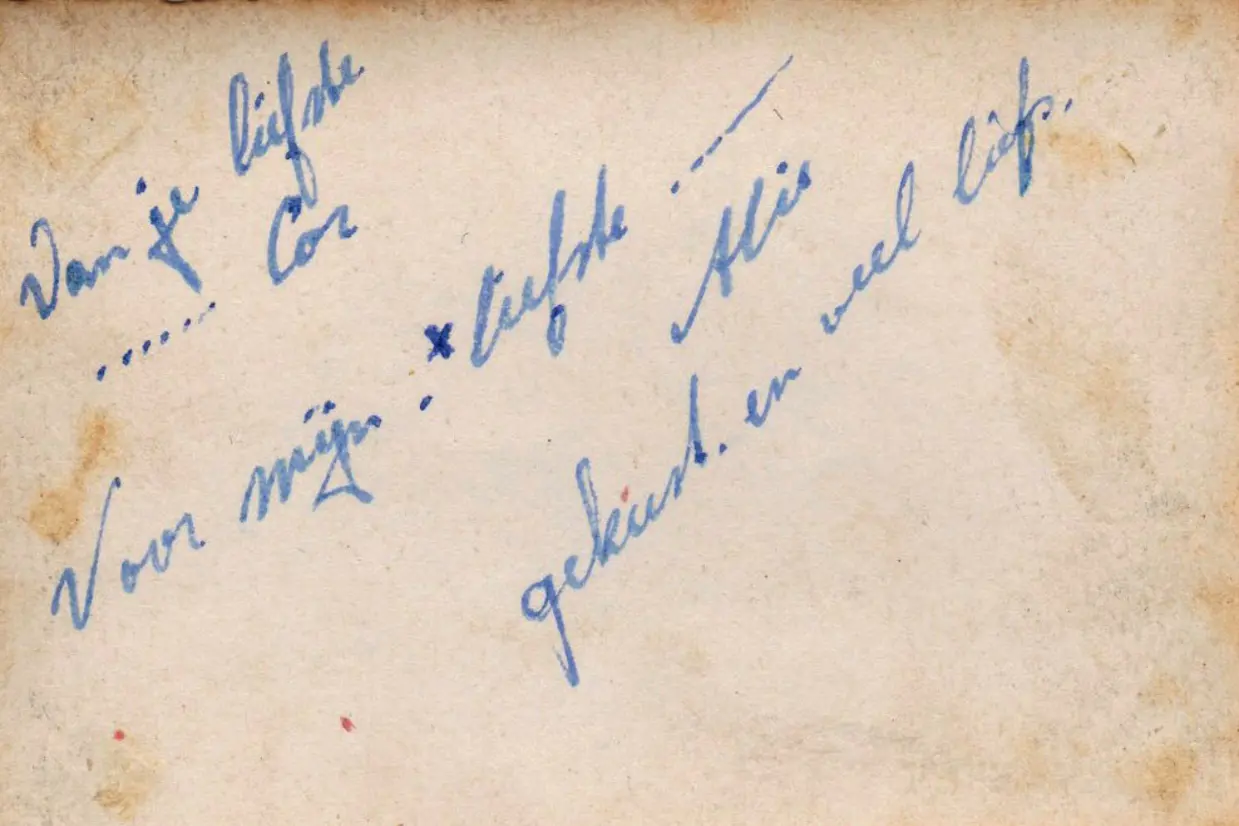 Van je liefste
...... Cor
Voor mijn . x liefste .---
Alie
gekust. en veel liefs.